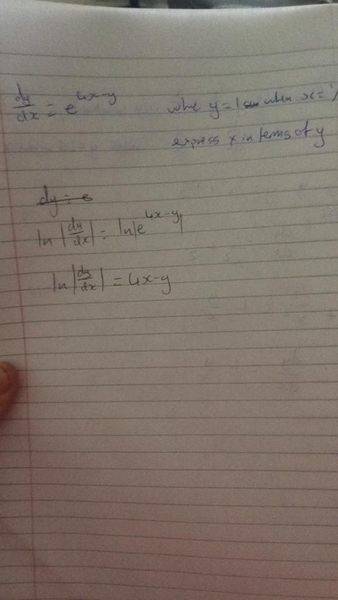 dy/dx = e^4x-y where y=1 when x=
express x in terms of y
dy = e
ln|dy/dx| = ln|e^4x-y|
ln|dy/dx| = 4x-y